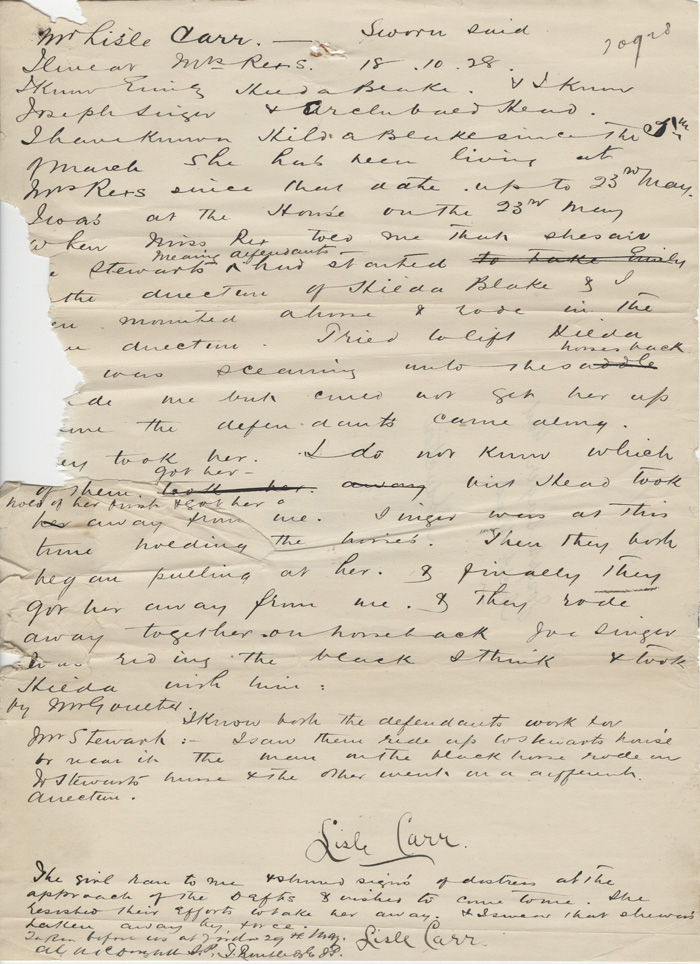 Mr Lisle Carr. — Sworn said
I live at Mrs Rex's. 18 . 10 . 28.
I know Emily Hilda Blake. & I know
Joseph Singer & Archibald Head.
I have known Hilda Blake since the 5th
of March She has been living at
Mrs Rex's since that date up to 23rd May.
I was at the House on the 23rd May
when Miss Rex told me that she saw
e Stewarts had started to take Emily
meaning defendants
the direction of Hilda Blake & I
en mounted a horse & rode in the
direction. Tried to lift Hilda
horses back
was screaming unto the saddle
de me but could not get her up
me the defendants came along.
ey took her. I do not know which
got her —
of them took her. away but Head took
hold of her first & got her
her away from me. Singer was at this
time holding the horses. Then they both
began pulling at her. & finally they
got her away from me. & they rode
away together on horseback Joe Singer
was riding the black I think & took
Hilda with him :
by Mr
I know both the defendants work for
Mr Stewart :- I saw them ride up to Stewarts house
or near it the man on the black horse rode on
to Stewarts house & the other went on a different
direction.
Lisle Carr.
The girl ran to me & showed signs of distress at the
approach of the Defts & wishes to come to me. She
resisted their efforts to take her away. & I swear that she was
taken away by force.
Taken before us at 29th May. Lisle Carr.
J.P. J.P.